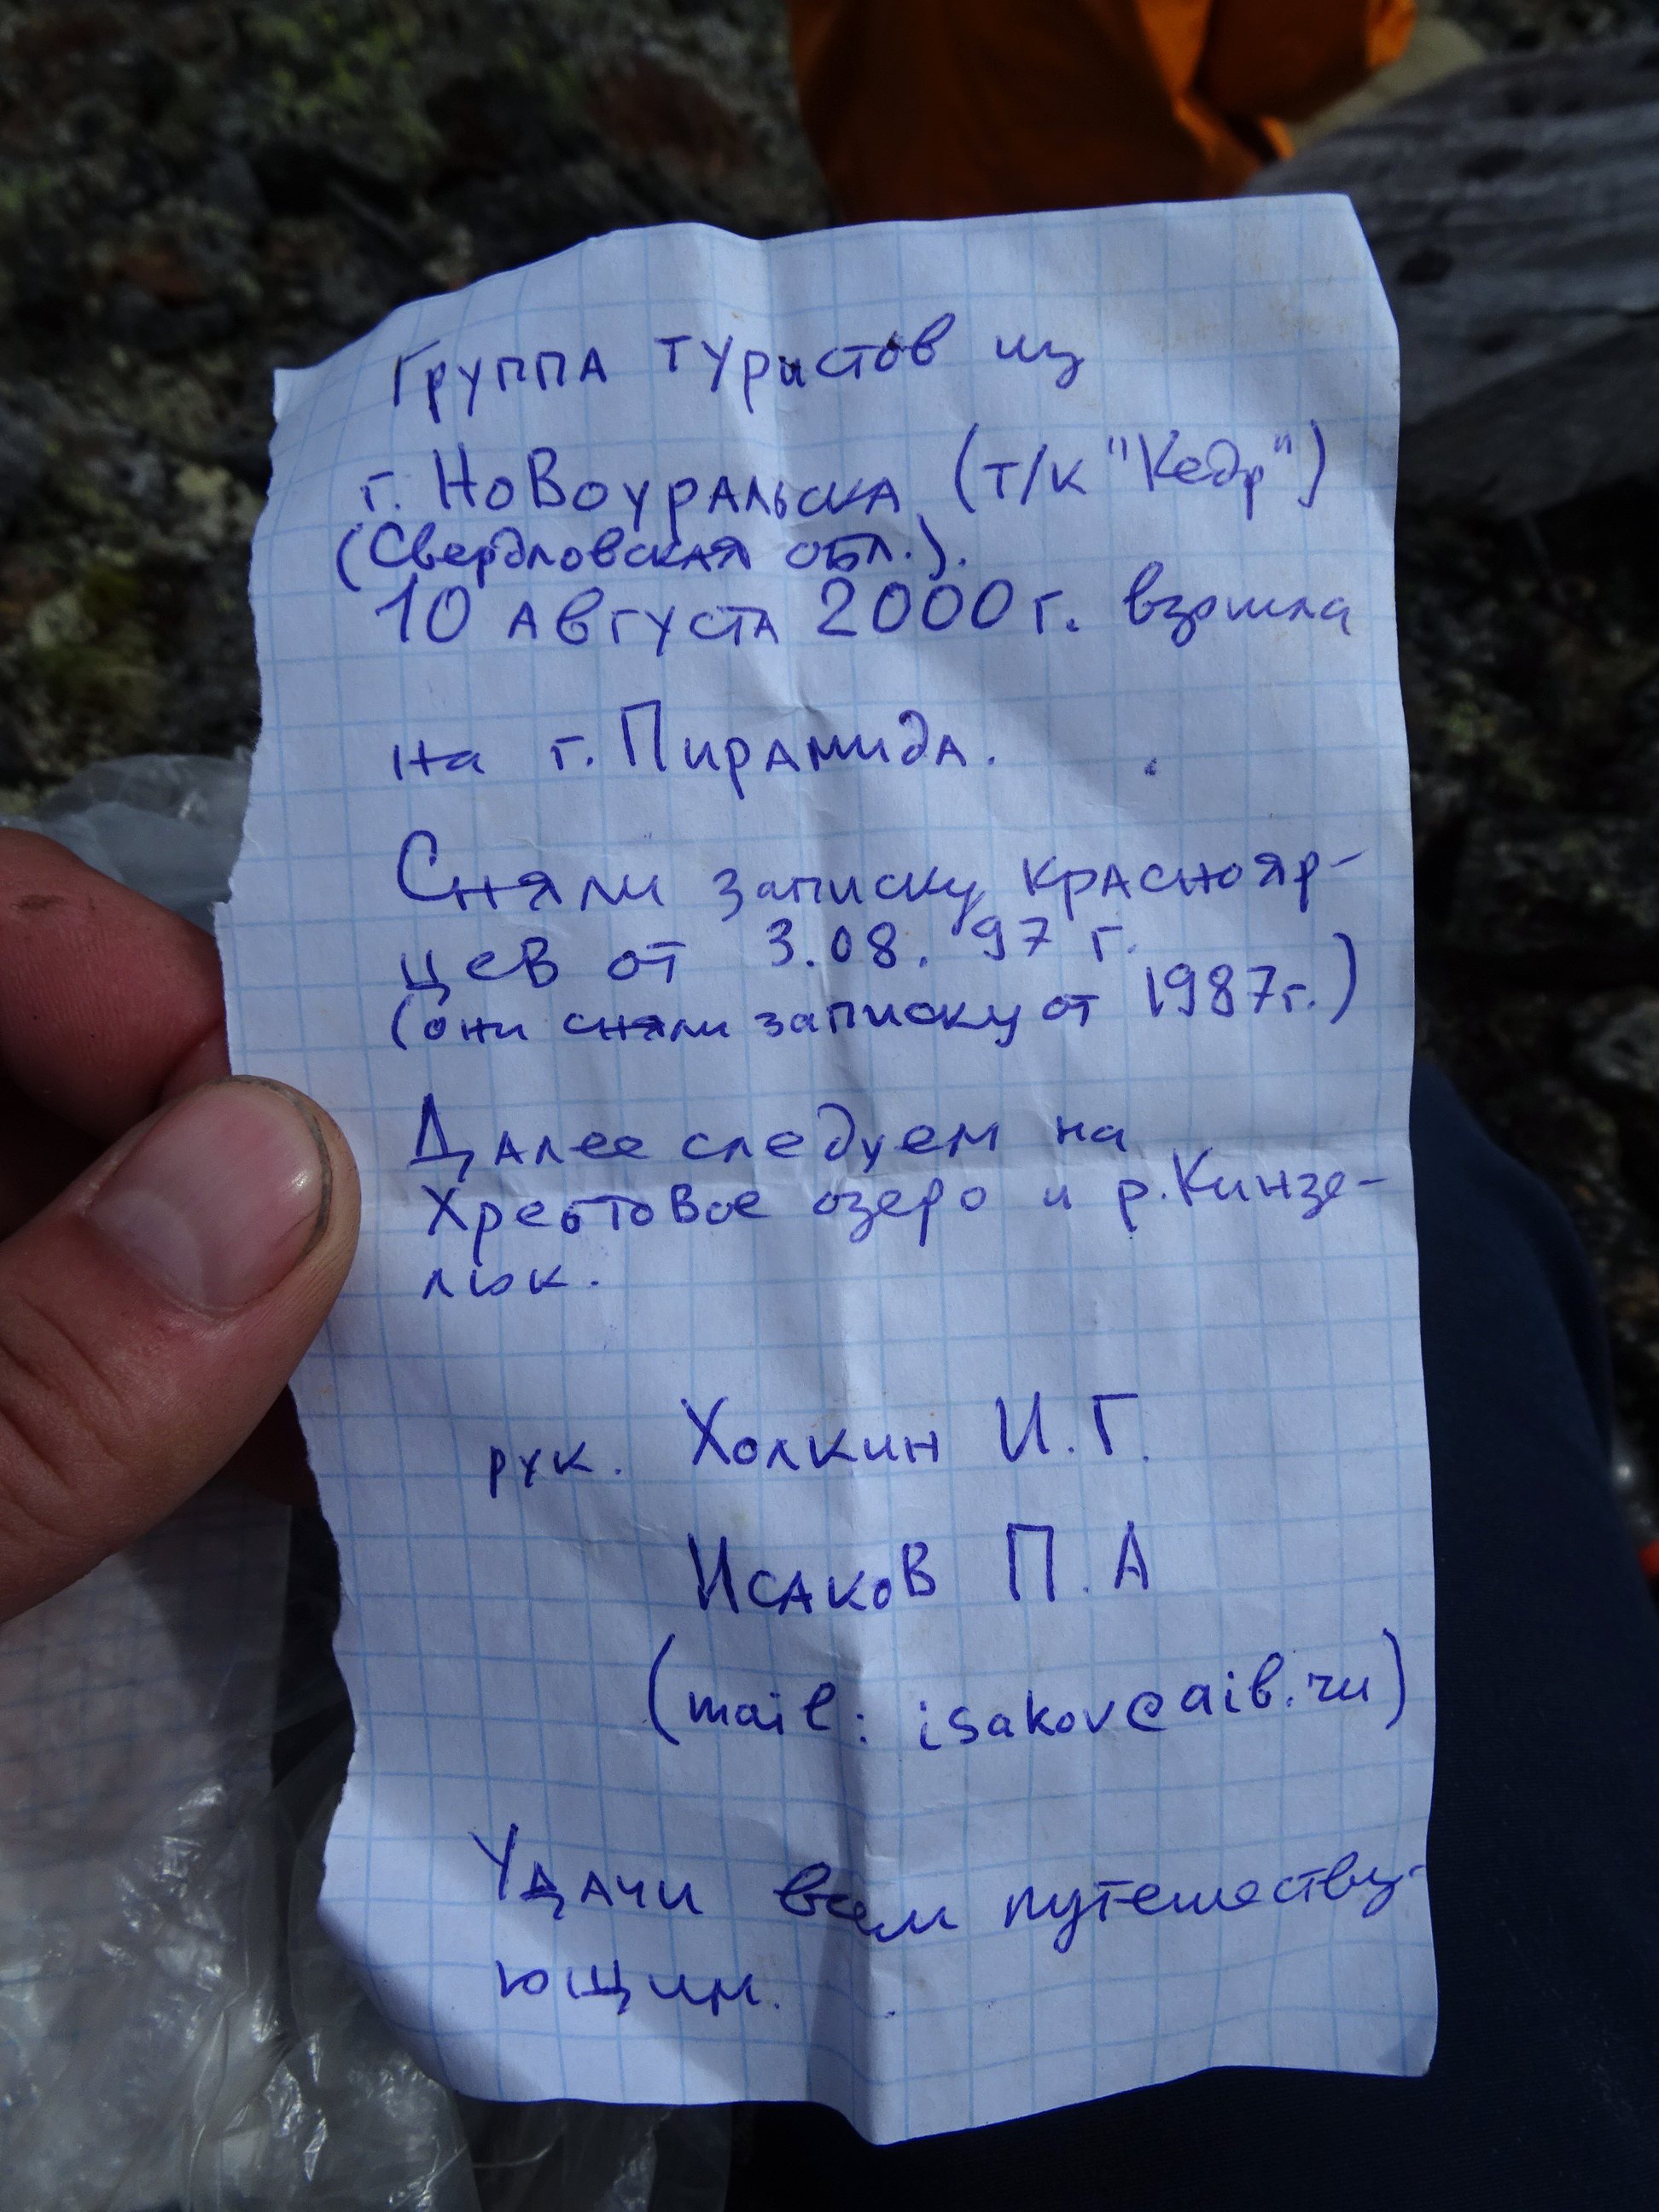 Группа туристов из
г. Новоуральска (т/к "Кедр")
(Свердловская обл.).
10 августа 2000 г. взошла
на г. Пирамида.
Сняли записку краснояр-
цев от 3.08. 97 г.
(они сняли записку от 1987г.)
Далее следуем на
Хребтовое озеро и р. Кинзе-
люк.
рук. Холкин И. Г.
Исаков П. А
(mail: isakov@aib.ru)
Удачи всем путешеству-
ющим.